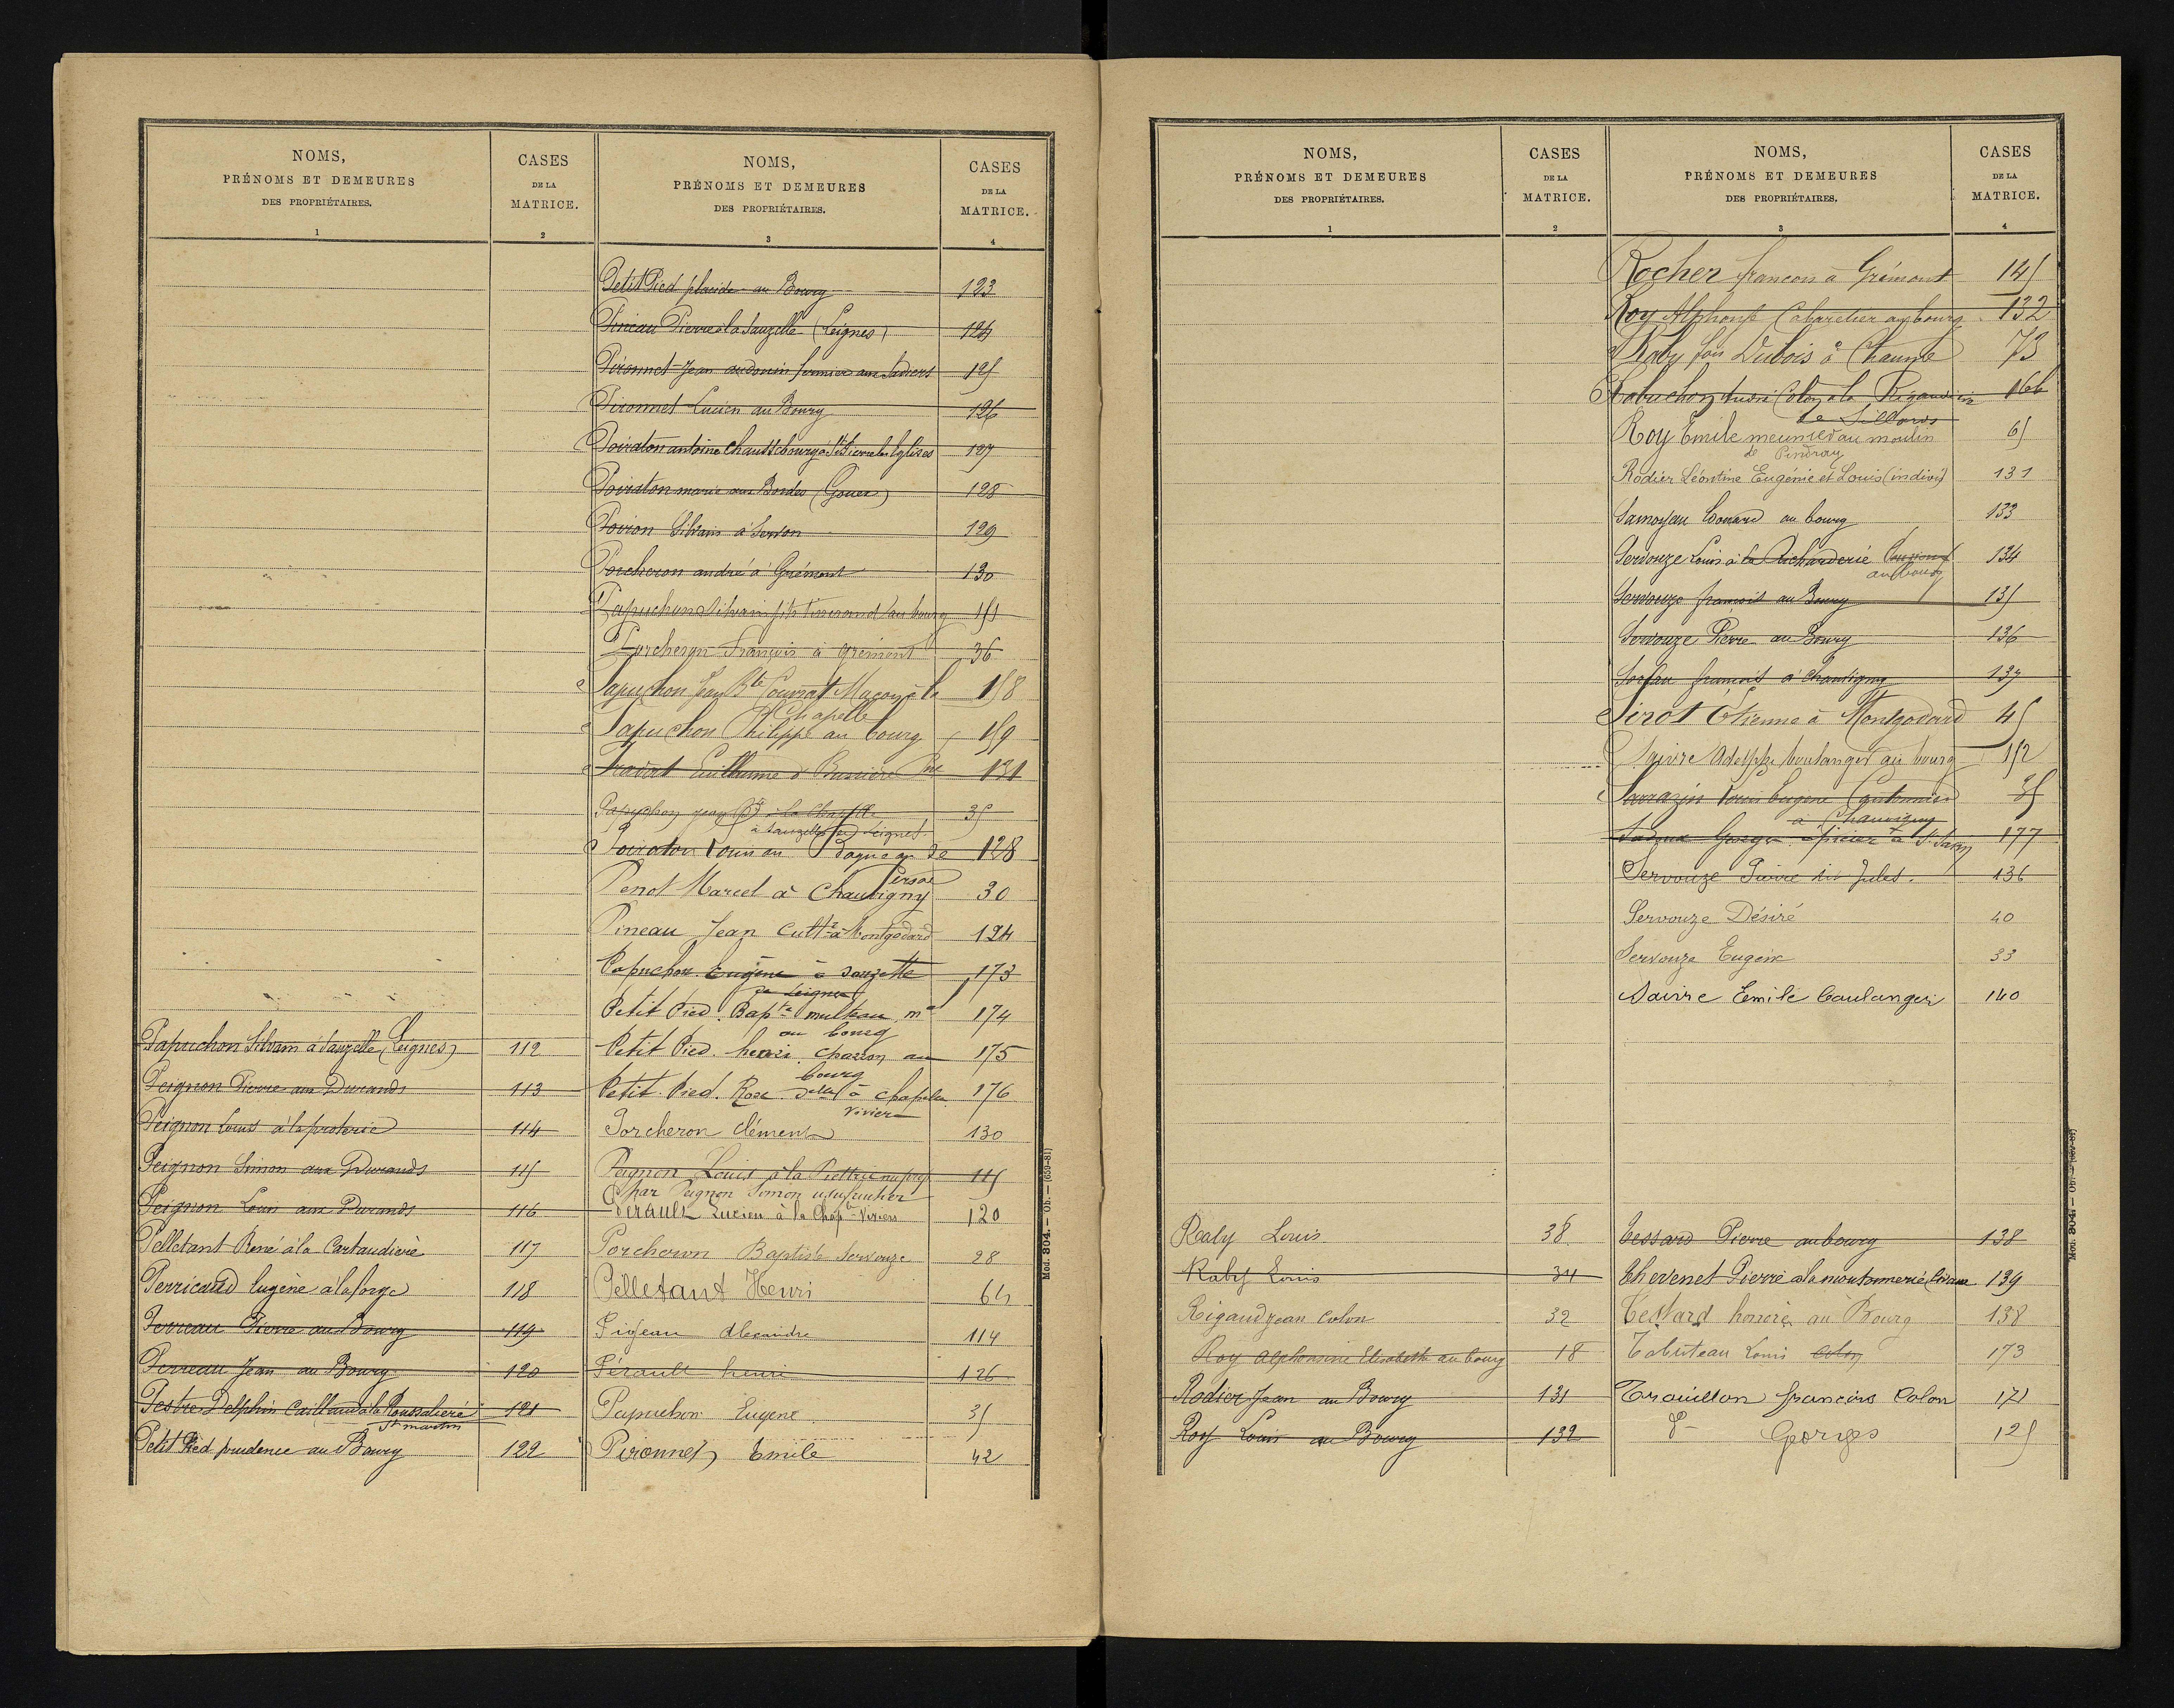 NOMS,
PRÉNOMS ET DEMEURES
DES PROPRIÉTAIRES.
1
CASES
DE LA
MATRICE.
2
Papuchon Silvain à Sauzelle (Leignes) 112
Peignon Pierre aux Durands 113
Peignon Louis à la proterie 114
Peignon Simon aux Durands 115
Peignon Louis aux Durands 116
Pelletant René à la Cartaudière 117
Perricaud Eugène à la forge 118
Perreau Pierre au Bourg 119
Perreau Jean au Bourg 120
Pestre Delphin Caillaud à la Roussalière 121
St martin
Petit Pied prudence au Bourg 122
NOMS,
PRÉNOMS ET DEMEURES
DES PROPRIÉTAIRES.
3
CASES
DE LA
MATRICE.
4
Petit Pied placide au Bourg 123
Pineau Pierre à la Sauzelle (Leignes) 124
Pironnet Jean audouin fermier aux 125
Pironnet Lucien au Bourg 126
Poiraton antoine à St Pierre les Eglises 127
Poiraton marie aux Bordes (Gouex) 128
Poiron Silvain à Servon 129
Porcheron andré à Grémont 130
Papuchon Silvain fils Tisserand au bourg 151
Porcheron François à grémont 36
Papuchon Jean Bte Couvrat Maçon à la 158
Chapelle
Papuchon Philippe au bourg 159
Guillaume à 131
Papuchon jean Bte à la Chapelle 35
à Sauzelle de Leignes
Poiraton Louis au de 128
Persac
Penot Marcel à Chauvigny 30
Pineau Jean Cultr à Montgodard 124
Papuchon Eugène à Sauzelle 173
de Leignes
Petit Pied Bapte multeau, md 174
au bourg
Petit Pied henri charron au 175
bourg
Petit Pied. Rose delle à chapelle 176
Vivier
Porcheron Clément 130
Peignon Louis à la nu prop 115
par Peignon Simon usufruitier
Perault Lucien à la Chaplle Viviers 120
Porcheron Baptiste Servouze 28
Pelletant Henri 64
Pigeau Alexandre 114
Pérault henri 126
Papuchon Eugene 35
Pironnet Emile 42
Mod. 804. — Ob. — (659-81)
NOMS,
PRÉNOMS ET DEMEURES
DES PROPRIÉTAIRES.
1
CASES
DE LA
MATRICE.
2
Raby Louis 38
Raby Louis 34
Rigaud jean colon 32
Roy Alphonsine Elisabeth au bourg 18
Rodier Jean au Bourg 131
Roy Louis au Bourg 132
NOMS,
PRÉNOMS ET DEMEURES
DES PROPRIÉTAIRES.
3
CASES
DE LA
MATRICE.
4
Rocher francois a Grémont 145
Roy Alphonse Cabaretier au bourg 132
Raby fois Dubois à Chaume 73
Rabuchon Colon a la Rigaudière 166
de Sillards
Roy Emile meunier au moulin 65
de Pindray
Rodier Léontine Eugénie et Louis (indivis) 131
Samoyau Léonard au bourg 133
Servouze Louis à la Richarderie 134
au bourg
Servouze françois au Bourg 135
Servouze Pierre au Bourg 136
françois à Chauvigny 137
Sirot Etienne à Montgodard 45
Saivre Adelphe boulanger au bourg 152
Sarrazin Louis Eugene Cantonnier 35
à Chauvigny
George épicier à St Savin 177
Servouze Pierre dit Jules. 136
Servouze Désiré 40
Servouze Eugène 33
Saivre Emile boulanger 140
Tessard Pierre au bourg 138
Thevenet Pierre à la moutonnerie 139
Tessard honoré au Bourg 138
Tabuteau Louis colon 173
Trouillon françois Colon 171
d° Georges 125
Mod. 804. — Ob. — (659-81)